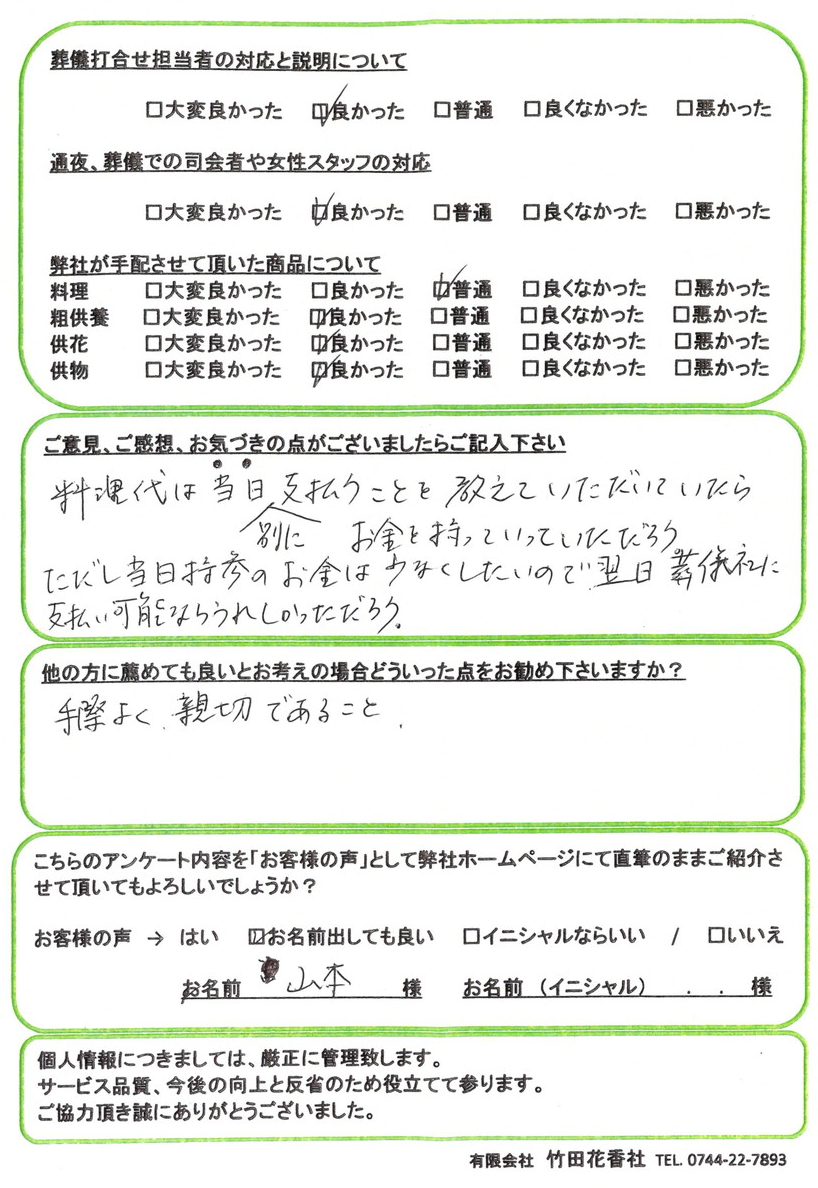 葬儀打合せ担当者の対応と説明について
□大変良かった ☑良かった □普通 □良くなかった □悪かった
通夜、葬儀での司会者や女性スタッフの対応
□大変良かった ☑良かった □普通 □良くなかった □悪かった
弊社が手配させて頂いた商品について
料理 □大変良かった □良かった ☑普通 □良くなかった □悪かった
粗供養 □大変良かった ☑良かった □普通 □良くなかった □悪かった
供花 □大変良かった ☑良かった □普通 □良くなかった □悪かった
供物 □大変良かった ☑良かった □普通 □良くなかった □悪かった
ご意見、ご感想、お気づきの点がございましたらご記入下さい
料理代は当日支払うことを教えていただいていたら
別に お金を持っていっていただろう
ただし当日持参のお金は少なくしたいので翌日葬儀社に
支払い可能ならうれしかっただろう。
他の方に薦めても良いとお考えの場合どういった点をお勧め下さいますか？
手際よく、親切であること.
こちらのアンケート内容を「お客様の声」として弊社ホームページにて直筆のままご紹介さ
せて頂いてもよろしいでしょうか？
お客様の声 → はい ☑お名前出しても良い □イニシャルならいい / □いいえ
お名前 山本 様 お名前（イニシャル） . . 様
個人情報につきましては、厳正に管理致します。
サービス品質、今後の向上と反省のため役立てて参ります。
ご協力頂き誠にありがとうございました。
有限会社 竹田花香社 TEL. 0744-22-7893